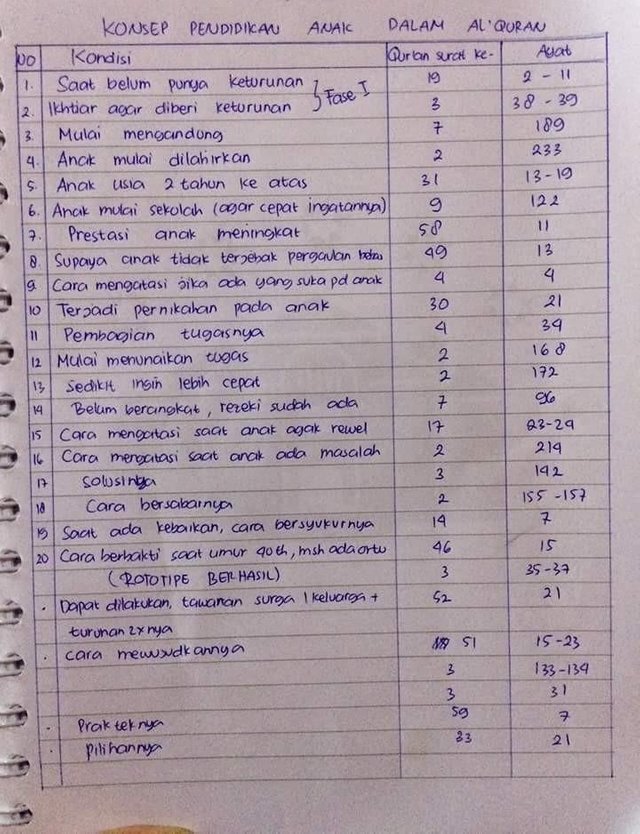 KONSEP PENDIDIKAN ANAK DALAM AL'QURAN
NO Kondisi Qur'an surat ke- Ayat
1. Saat belum punya keturunan } Fase I 19 2 - 11
2. Ikhtiar agar diberi keturunan 3 38 - 39
3. Mulai mengandung 7 189
4. Anak mulai dilahirkan 2 233
5. Anak usia 2 tahun ke atas 31 13-19
6. Anak mulai sekolah (agar cepat ingatannya) 9 122
7. Prestasi anak meningkat 58 11
8. Supaya anak tidak terjebak pergaulan bebas 49 13
9 Cara mengatasi jika ada yang suka pd anak 4 4
10 Terjadi pernikahan pada anak 30 21
11 Pembagian tugasnya 4 34
12 Mulai menunaikan tugas 2 168
13 Sedikit ingin lebih cepat 2 172
14 Belum berangkat, rezeki sudah ada 7 96
15 Cara mengatasi saat anak agak rewel 17 23-24
16 Cara mengatasi saat anak ada masalah 2 214
17 Solusinya 3 142
18 Cara bersabarnya 2 155 -157
19 Saat ada kebaikan, cara bersyukurnya 14 7
20 Cara berbakti saat umur 40th, msh ada ortu 46 15
(ROTOTIPE BERHASIL) 3 35-37
. Dapat dilakukan, tawanan surga 1 keluarga + 52 21
turunan 2xnya
. Cara mewujudkannya 51 15-23
3 133-134
3 31
. Prakteknya 59 7
. pilihannya 33 21